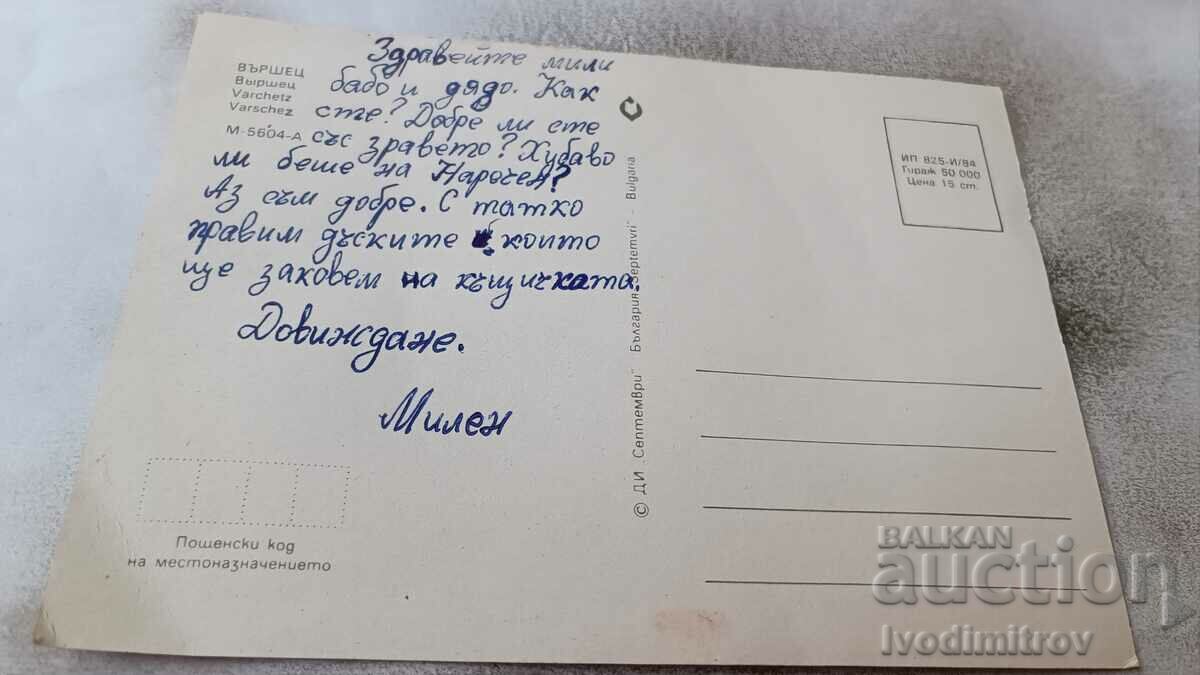 ВЪРШЕЦ
Выршец
Varchetz
Varschez
М-5604-А
Здравейте мили
бабо и дядо. Как
сте? Добре ли сте
със зравето? Хубаво
ли беше на Наречен?
Аз съм добре. С татко
правим дъските които
ще заковем на къщичката.
Довиждане.
Милен
Пощенски код
на местоназначението
© ДИ "Септември" - България "Septemvri" - Bulgaria
ИП 825-И/84
Тираж 50 000
Цена 15 ст.
BALKAN
auction
Ivodimitrov